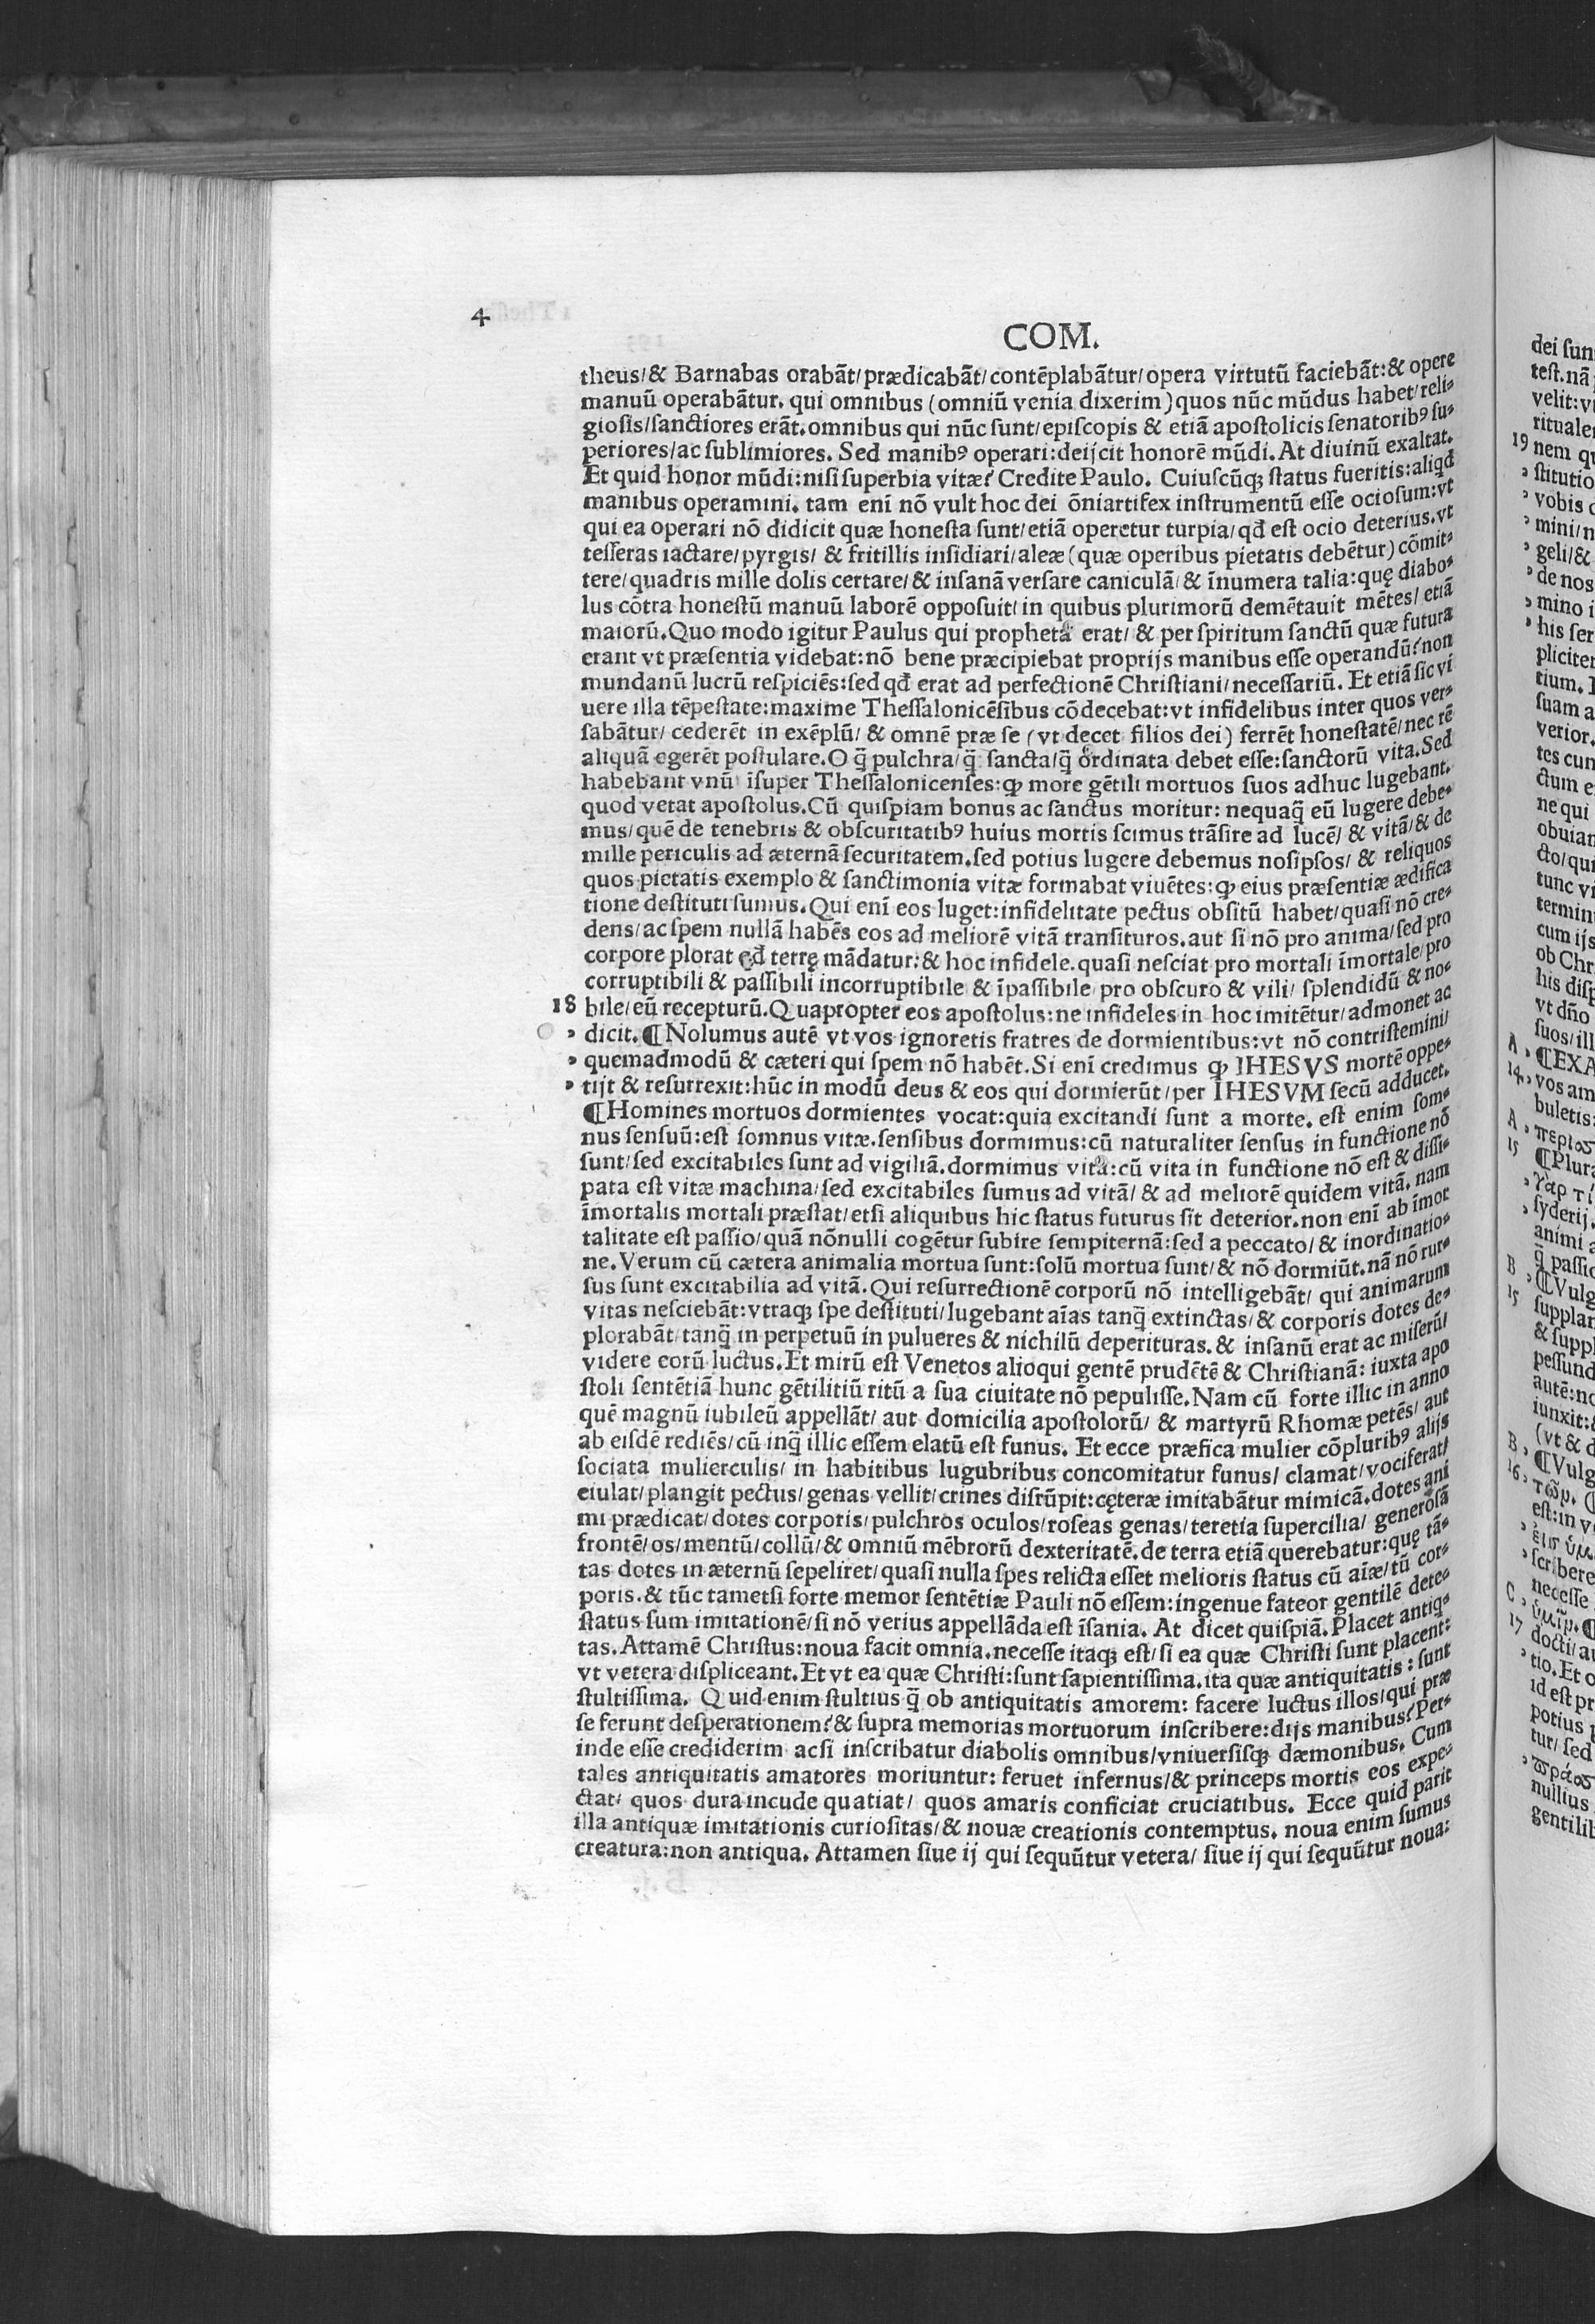 4
COM.
theus/& Barnabas orabãt/prædicabãt/contẽplabãtur/opera virtutũ faciebãt:& opere
manuũ operabãtur. qui omnibus (omniũ venia dixerim) quos nũc mũdus habet/reli⸗
gioſis/ſanctiores erãt. omnibus qui nũc ſunt/epiſcopis & etiã apoſtolicis ſenatoribꝰ ſu⸗
periores/ac ſublimiores. Sed manibꝰ operari:deijcit honorẽ mũdi. At diuinũ exaltat.
Et quid honor mũdi:niſi ſuperbia vitæ? Credite Paulo. Cuiuſcũqꝫ ſtatus fueritis:aliqđ
manibus operamini. tam enĩ nõ vult hoc dei õniartifex inſtrumentũ eſſe ocioſum:vt
qui ea operari nõ didicit quæ honeſta ſunt/etiã operetur turpia/qđ eſt ocio deterius. vt
teſſeras iactare/pyrgis/ & fritillis inſidiari/aleæ (quæ operibus pietatis debẽtur) cõmit⸗
tere/quadris mille dolis certare/ & inſanã verſare caniculã/ & ĩnumera talia:quę diabo⸗
lus cõtra honeſtũ manuũ laborẽ oppoſuit/ in quibus plurimorũ demẽtauit mẽtes/ etiã
maiorũ. Quo modo igitur Paulus qui propheta erat/ & per ſpiritum ſanctũ quæ futura
erant vt præſentia videbat:nõ bene præcipiebat proprijs manibus eſſe operandũ? non
mundanũ lucrũ reſpiciẽs:ſed qđ erat ad perfectionẽ Chriſtiani/neceſſariũ. Et etiã ſic vi
uere illa tẽpeſtate:maxime Theſſalonicẽſibus cõdecebat:vt infidelibus inter quos ver⸗
ſabãtur/ cederẽt in exẽplũ/ & omnẽ præ ſe (vt decet filios dei) ferrẽt honeſtatẽ/nec rẽ
aliquã egerẽt poſtulare. O q̃ pulchra/q̃ ſancta/q̃ ordinata debet eſſe:ſanctorũ vita. Sed
habebant vnũ ĩſuper Theſſalonicenſes:ꝙ more gẽtili mortuos ſuos adhuc lugebant.
quod vetat apoſtolus. Cũ quiſpiam bonus ac ſanctus moritur: nequaq̃ eũ lugere debe⸗
mus/quẽ de tenebris & obſcuritatibꝰ huius mortis ſcimus trãſire ad lucẽ/ & vitã/& de
mille periculis ad æternã ſecuritatem. ſed potius lugere debemus noſipſos/ & reliquos
quos pietatis exemplo & ſanctimonia vitæ formabat viuẽtes:ꝙ eius præſentiæ ædifica
tione deſtituti ſumus. Qui enĩ eos luget:infidelitate pectus obſitũ habet/quaſi nõ cre⸗
dens/ac ſpem nullã habẽs eos ad meliorẽ vitã tranſituros. aut ſi nõ pro anima/ſed pro
corpore plorat qđ terrę mãdatur:& hoc infidele. quaſi neſciat pro mortali ĩmortale/pro
corruptibili & paſſibili incorruptibile & ĩpaſſibile/pro obſcuro & vili/ ſplendidũ & no⸗
18 bile/eũ recepturũ. Quapropter eos apoſtolus:ne infideles in hoc imitẽtur/admonet ac
› dicit. ¶Nolumus autẽ vt vos ignoretis fratres de dormientibus:vt nõ contriſtemini/
› quemadmodũ & cæteri qui ſpem nõ habẽt. Si enĩ credimus ꝙ IHESVS mortẽ oppe⸗
› tijt & reſurrexit:hũc in modũ deus & eos qui dormierũt/per IHESVM ſecũ adducet.
¶Homines mortuos dormientes vocat:quia excitandi ſunt a morte. eſt enim ſom⸗
nus ſenſuũ:eſt ſomnus vitæ. ſenſibus dormimus:cũ naturaliter ſenſus in functione nõ
ſunt/ſed excitabiles ſunt ad vigiliã. dormimus vita:cũ vita in functione nõ eſt & diſſi⸗
pata eſt vitæ machina/ſed excitabiles ſumus ad vitã/ & ad meliorẽ quidem vitã. nam
ĩmortalis mortali præſtat/etſi aliquibus hic ſtatus futurus ſit deterior. non enĩ ab ĩmor
talitate eſt paſſio/quã nõnulli cogẽtur ſubire ſempiternã:ſed a peccato/ & inordinatio⸗
ne. Verum cũ cætera animalia mortua ſunt:ſolũ mortua ſunt/& nõ dormiũt. nã nõ rur⸗
ſus ſunt excitabilia ad vitã. Qui reſurrectionẽ corporũ nõ intelligebãt/ qui animarum
vitas neſciebãt:vtraqꝫ ſpe deſtituti/lugebant aĩas tanq̃ extinctas/& corporis dotes de⸗
plorabãt/tanq̃ in perpetuũ in pulueres & nichilũ deperituras. & inſanũ erat ac miſerũ/
videre eorũ luctus. Et mirũ eſt Venetos alioqui gentẽ prudẽtẽ & Chriſtianã: iuxta apo
ſtoli ſentẽtiã hunc gẽtilitiũ ritũ a ſua ciuitate nõ pepuliſſe. Nam cũ forte illic in anno
quẽ magnũ iubileũ appellãt/ aut domicilia apoſtolorũ/ & martyrũ Rhomæ petẽs/ aut
ab eiſdẽ rediẽs/cũ inq̃ illic eſſem elatũ eſt funus. Et ecce præfica mulier cõpluribꝰ alijs
ſociata mulierculis/ in habitibus lugubribus concomitatur funus/ clamat/vociferat/
eiulat/plangit pectus/genas vellit/crines diſrũpit:cęteræ imitabãtur mimicã. dotes ani
mi prædicat/dotes corporis/pulchros oculos/roſeas genas/teretia ſupercilia/ generoſã
frontẽ/os/mentũ/collũ/& omniũ mẽbrorũ dexteritatẽ. de terra etiã querebatur:quę tã⸗
tas dotes in æternũ ſepeliret/quaſi nulla ſpes relicta eſſet melioris ſtatus cũ aĩæ/tũ cor⸗
poris. & tũc tametſi forte memor ſentẽtiæ Pauli nõ eſſem:ingenue fateor gentilẽ dete⸗
ſtatus ſum imitationẽ/ſi nõ verius appellãda eſt ĩſania. At dicet quiſpiã. Placet antiq⸗
tas. Attamẽ Chriſtus:noua facit omnia. neceſſe itaqꝫ eſt/ſi ea quæ Chriſti ſunt placent:
vt vetera diſpliceant. Et vt ea quæ Chriſti:ſunt ſapientiſſima. ita quæ antiquitatis: ſunt
ſtultiſſima. Quid enim ſtultius q̃ ob antiquitatis amorem: facere luctus illos/qui præ
ſe ferunt deſperationem?& ſupra memorias mortuorum inſcribere:dijs manibus? Per⸗
inde eſſe crediderim acſi inſcribatur diabolis omnibus/vniuerſiſqꝫ dæmonibus. Cum
tales antiquitatis amatores moriuntur: feruet infernus/& princeps mortis eos expe⸗
ctat/ quos dura incude quatiat/ quos amaris conficiat cruciatibus. Ecce quid parit
illa antiquæ imitationis curioſitas/& nouæ creationis contemptus. noua enim ſumus
creatura:non antiqua. Attamen ſiue ij qui ſequũtur vetera/ ſiue ij qui ſequũtur noua: